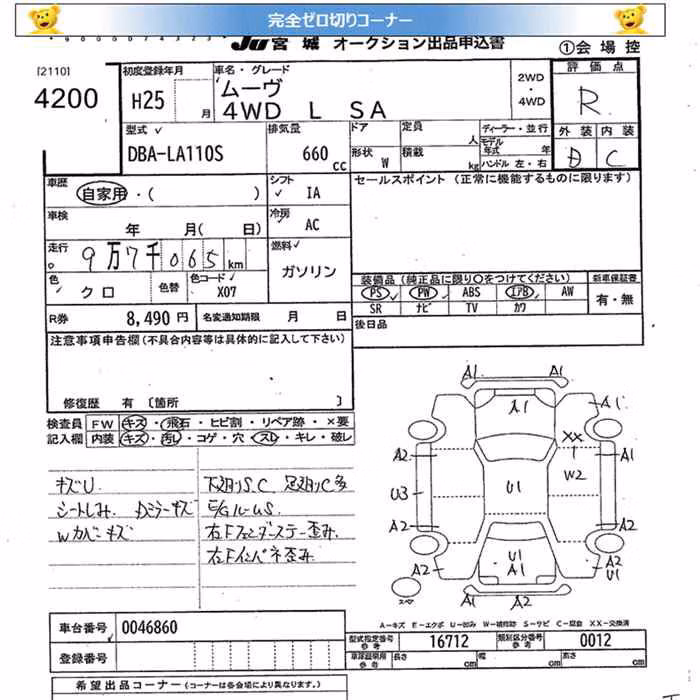 完全ゼロ切りコーナー
JU宮城 オークション出品申込書
①会場控
[2110]
4200
初度登録年月
H25 月
車名・グレード
ムーヴ
4WD L SA
2WD
・
4WD
評価点
R
型式
DBA-LA110S
排気量
660 cc
ドア
形状 W
定員 人
積載 kg
ディーラー・並行
モデル年式 年
ハンドル 左・右
外装 内装
D C
車歴
自家用・( )
シフト
IA
セールスポイント (正常に機能するものに限ります)
車検
年 月( 日)
冷房
AC
走行
9万7千065km
燃料
ガソリン
色
クロ
色替
色コード
X07
装備品 (純正品に限り○をつけてください)
新車保証書
PS PW ABS エアB AW
有・無
SR ナビ TV カワ
R券 8,490円
名変通知期限 月 日
後日品
注意事項申告欄 (不具合内容等は具体的に記入して下さい)
修復歴 有 〔箇所 〕
検査員 FW キズ・飛石・ヒビ割・リペア跡・×要
記入欄 内装 キズ・汚れ・コゲ・穴・スレ・キレ・破レ
キズU
シートしみ. Dミラーキズ
Wカバーキズ
下廻りS.C 足廻りC多
右Fフェンダーステー歪み.
右Fインパネ歪み.
A1
A1
A1
A1
XX
A2
A1
W2
U3
U1
A2
A2
U1
A1
A2
A2
U1
スペア
A1
A2
A-キズ E-エクボ U-凹み W-補修跡 S-サビ C-腐食 XX-交換済
車台番号 0046860
型式指定番号 参考 16712
類別区分番号 参考 0012
登録番号
参考 長さ cm 幅 cm 高さ cm
希望出品コーナー (コーナーは各会場により異なります。)